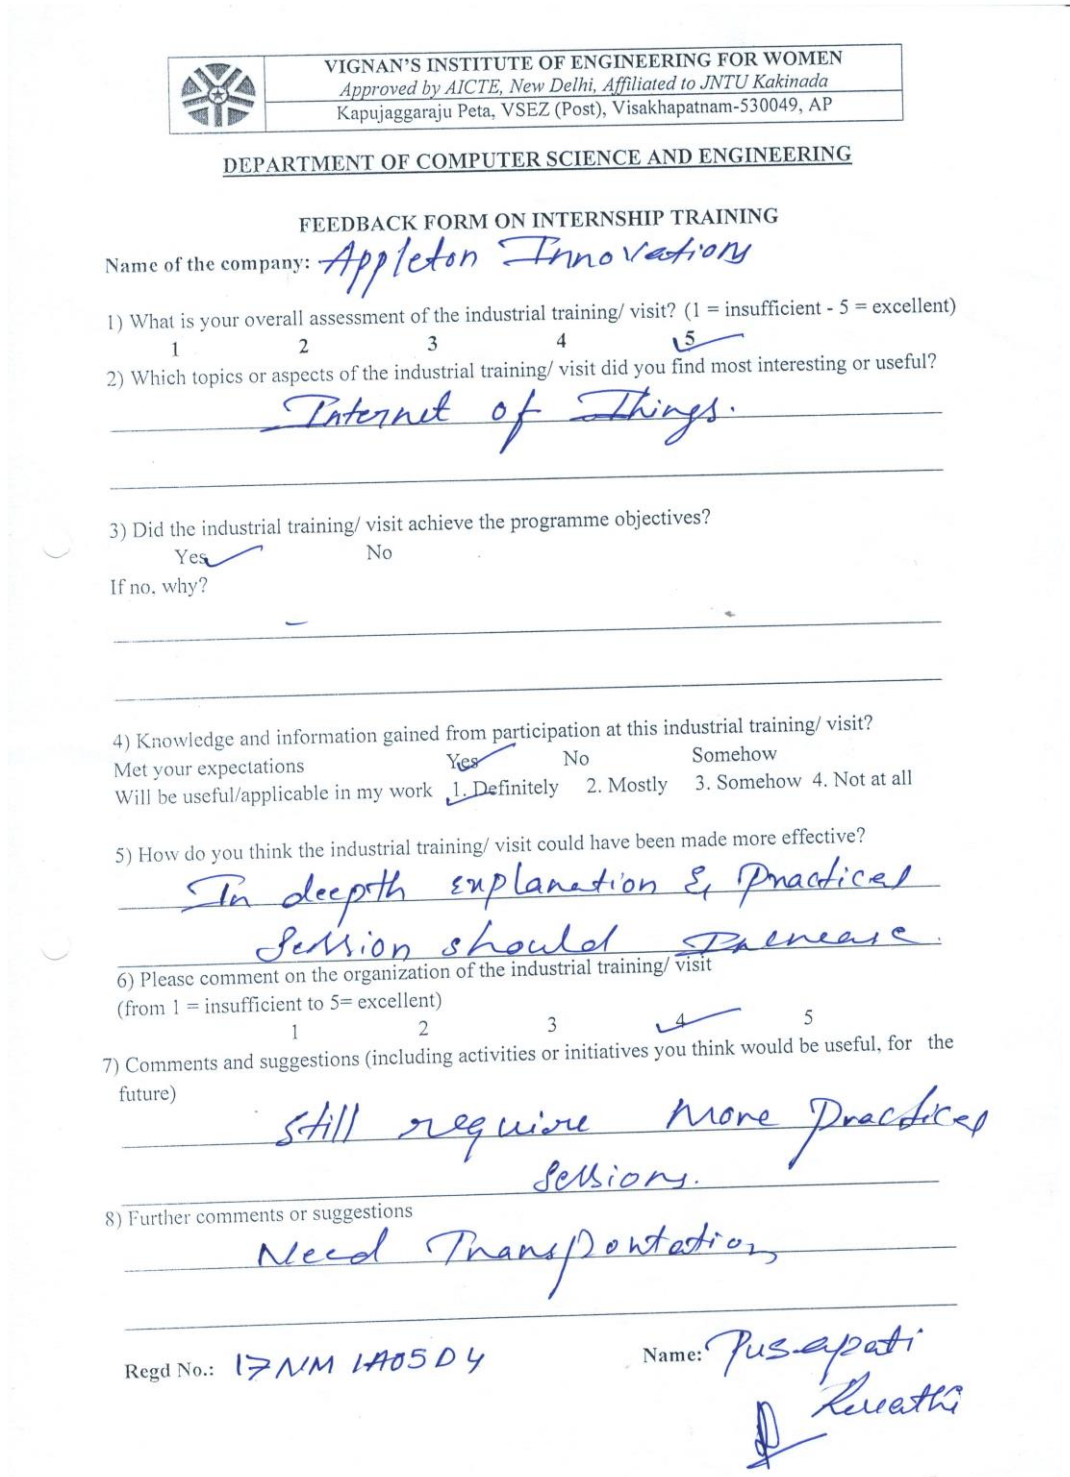 VIGNAN'S INSTITUTE OF ENGINEERING FOR WOMEN
Approved by AICTE, New Delhi, Affiliated to JNTU Kakinada
Kapujaggaraju Peta, VSEZ (Post), Visakhapatnam-530049, AP
DEPARTMENT OF COMPUTER SCIENCE AND ENGINEERING
FEEDBACK FORM ON INTERNSHIP TRAINING
Name of the company: Appleton Innovations
1) What is your overall assessment of the industrial training/ visit? (1 = insufficient - 5 = excellent)
1 2 3 4 5
2) Which topics or aspects of the industrial training/ visit did you find most interesting or useful?
Internet of Things.
3) Did the industrial training/ visit achieve the programme objectives?
Yes No
If no, why?
4) Knowledge and information gained from participation at this industrial training/ visit?
Met your expectations Yes No Somehow
Will be useful/applicable in my work 1. Definitely 2. Mostly 3. Somehow 4. Not at all
5) How do you think the industrial training/ visit could have been made more effective?
In deepth explanation & practical
Session should Increase.
6) Please comment on the organization of the industrial training/ visit
(from 1 = insufficient to 5= excellent)
1 2 3 4 5
7) Comments and suggestions (including activities or initiatives you think would be useful, for the
future)
Still require More Practical
Sessions.
8) Further comments or suggestions
Need Transportation
Regd No.: 17NM1A05D4 Name: Pusapati
Revathi